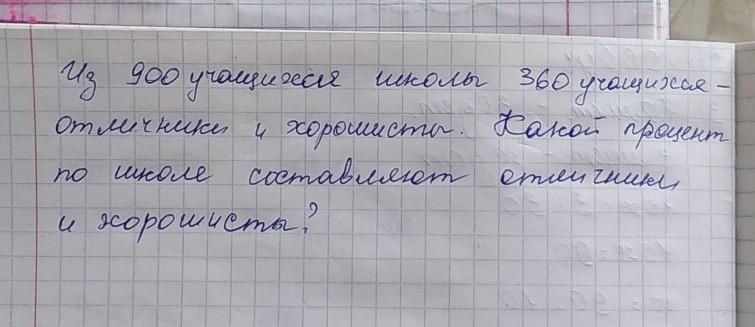 Из 900 учащихся школы 360 учащихся -
отличники и хорошисты. Какой процент
по школе составляют отличники
и хорошисты?